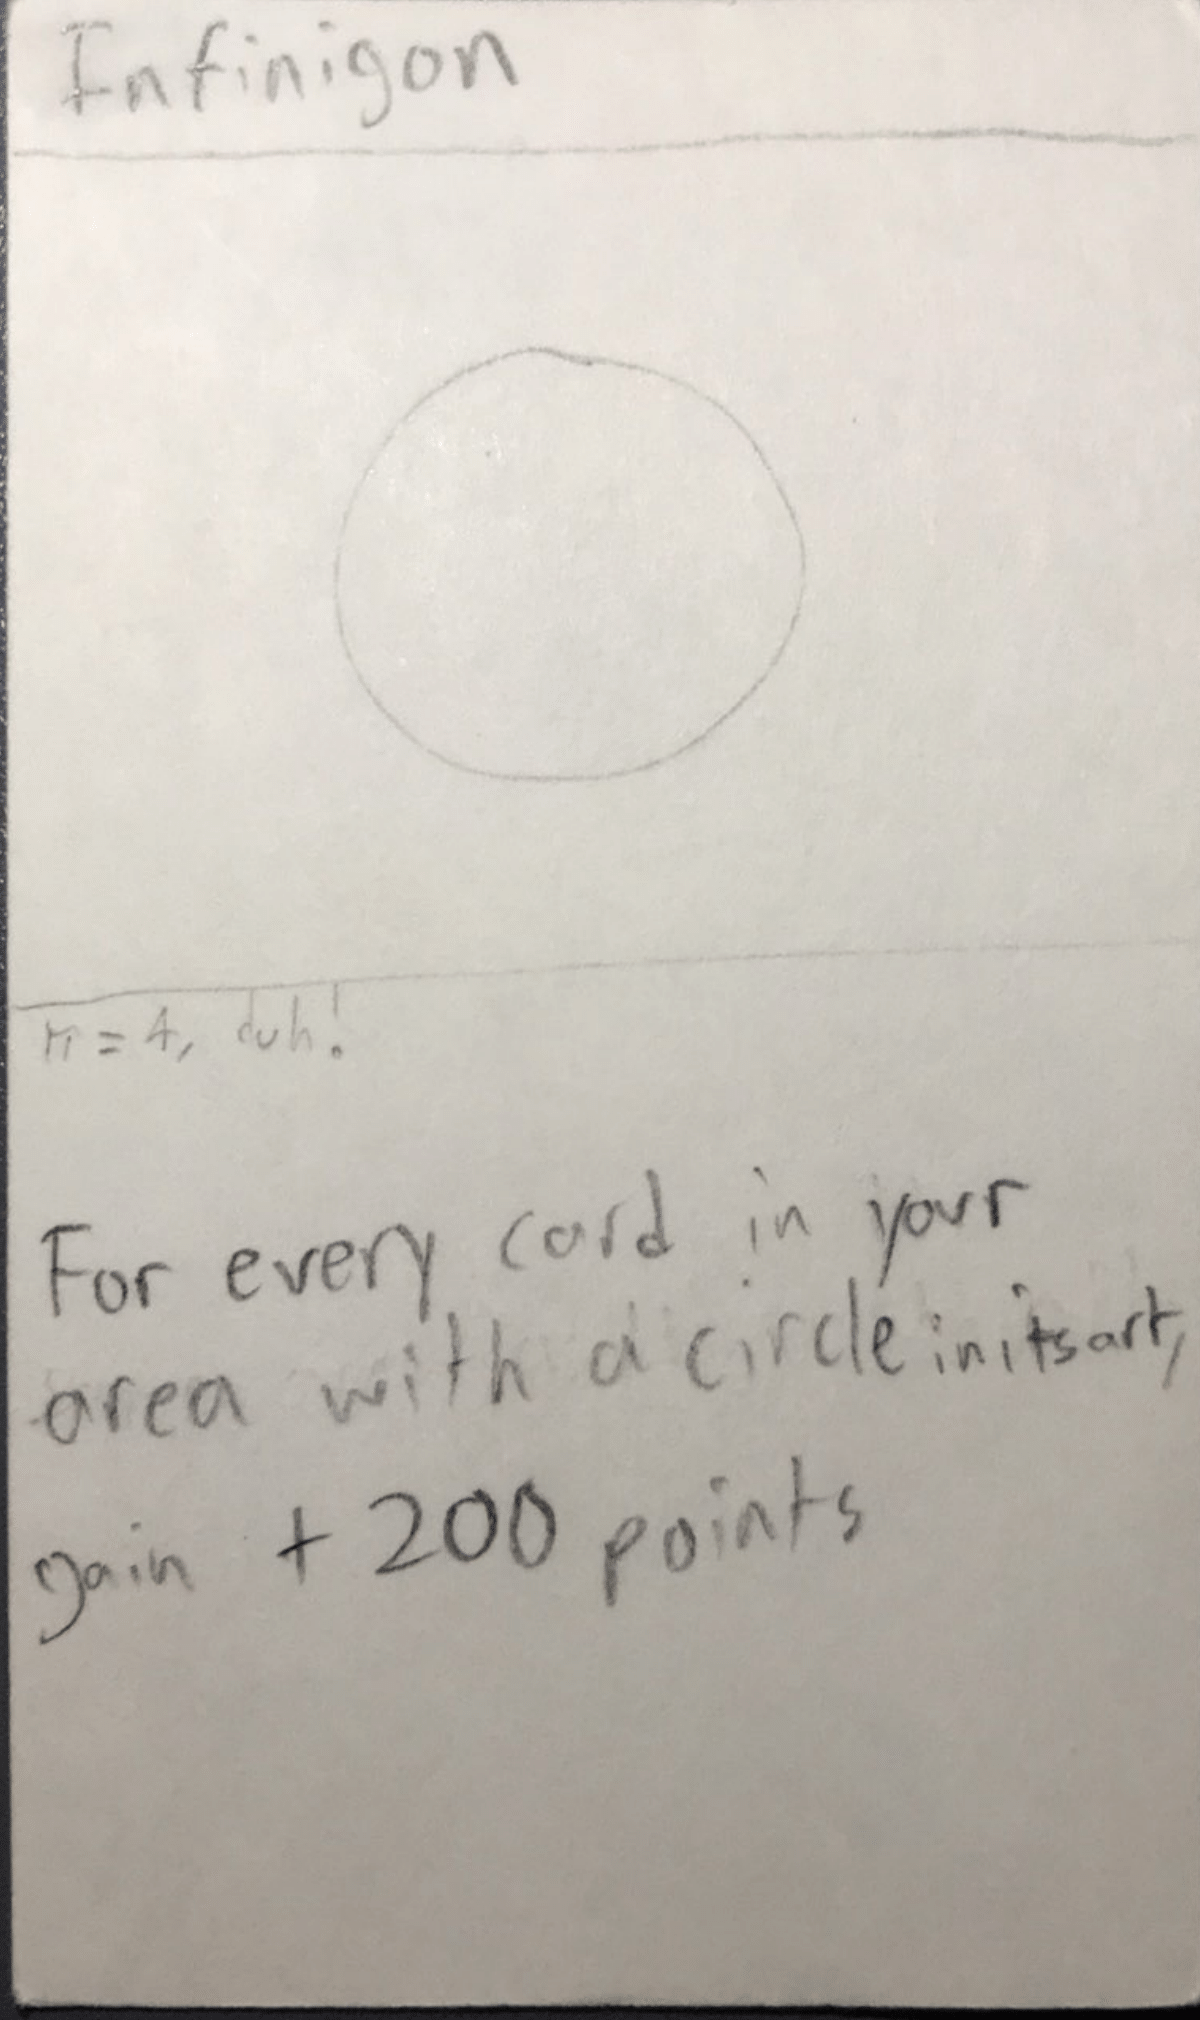 Infinigon
π = 4, duh!
For every card in your
area with a circle in its art,
gain + 200 points